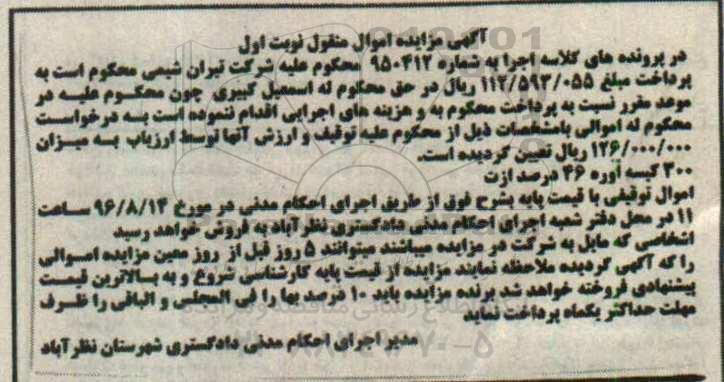 آگهی مزایده اموال منقول نوبت اول
در پرونده های کلاسه اجرا به شماره ۹۵۰۴۱۲ محکوم علیه شرکت تیران شیمی محکوم است به
پرداخت مبلغ ۱۱۲/۵۹۲/۰۵۵ ریال در حق محکوم له اسمعیل کبیری چون محکوم علیه در
موعد مقرر نسبت به پرداخت محکوم به و هزینه های اجرایی اقدام ننموده است به درخواست
محکوم له اموالی بامشخصات ذیل از محکوم علیه توقیف و ارزش آنها توسط ارزیاب به میزان
۱۲۶/۰۰۰/۰۰۰ ریال تعیین گردیده است.
۳۰۰ کیسه اوره ۴۶ درصد ازت
اموال توقیفی با قیمت پایه بشرح فوق از طریق اجرای احکام مدنی در مورخ ۹۶/۸/۱۴ ساعت
۱۱ در محل دفتر شعبه اجرای احکام مدنی دادگستری نظرآباد به فروش خواهد رسید
اشخاصی که مایل به شرکت در مزایده میباشند میتوانند ۵ روز قبل از روز معین مزایده اموالی
را که آگهی گردیده ملاحظه نمایند مزایده از قیمت پایه کارشناسی شروع و به بالاترین قیمت
پیشنهادی فروخته خواهد شد برنده مزایده باید ۱۰ درصد بها را فی المجلس و الباقی را ظرف
مهلت حداکثر یکماه پرداخت نماید
مدیر اجرای احکام مدنی دادگستری شهرستان نظرآباد